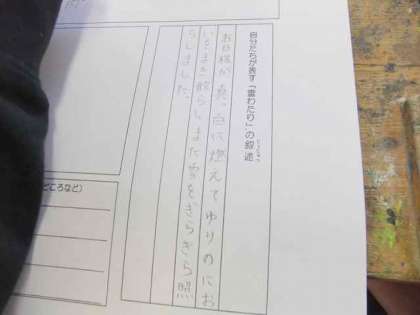 自分たちが表す「雪わたり」の叙述
じょじゅつ
お日様が真っ白に燃えてゆりのにお
いをまき散らしまた雪をぎらぎら照
らしました。
どころなど）